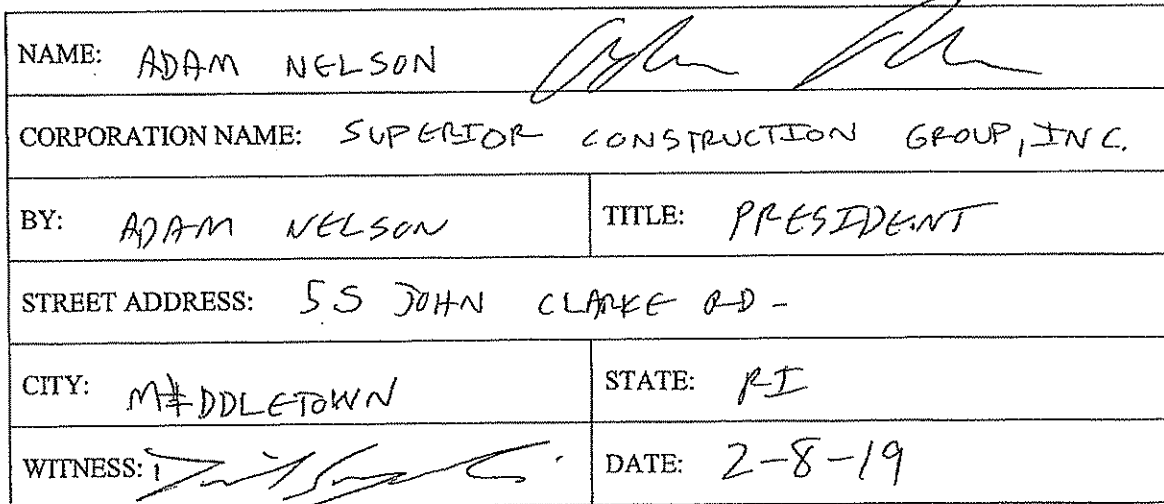 NAME: ADAM NELSON
CORPORATION NAME: SUPERIOR CONSTRUCTION GROUP, INC.
BY: ADAM NELSON TITLE: PRESIDENT
STREET ADDRESS: 55 JOHN CLARKE RD -
CITY: MIDDLETOWN STATE: RI
WITNESS: DATE: 2-8-19